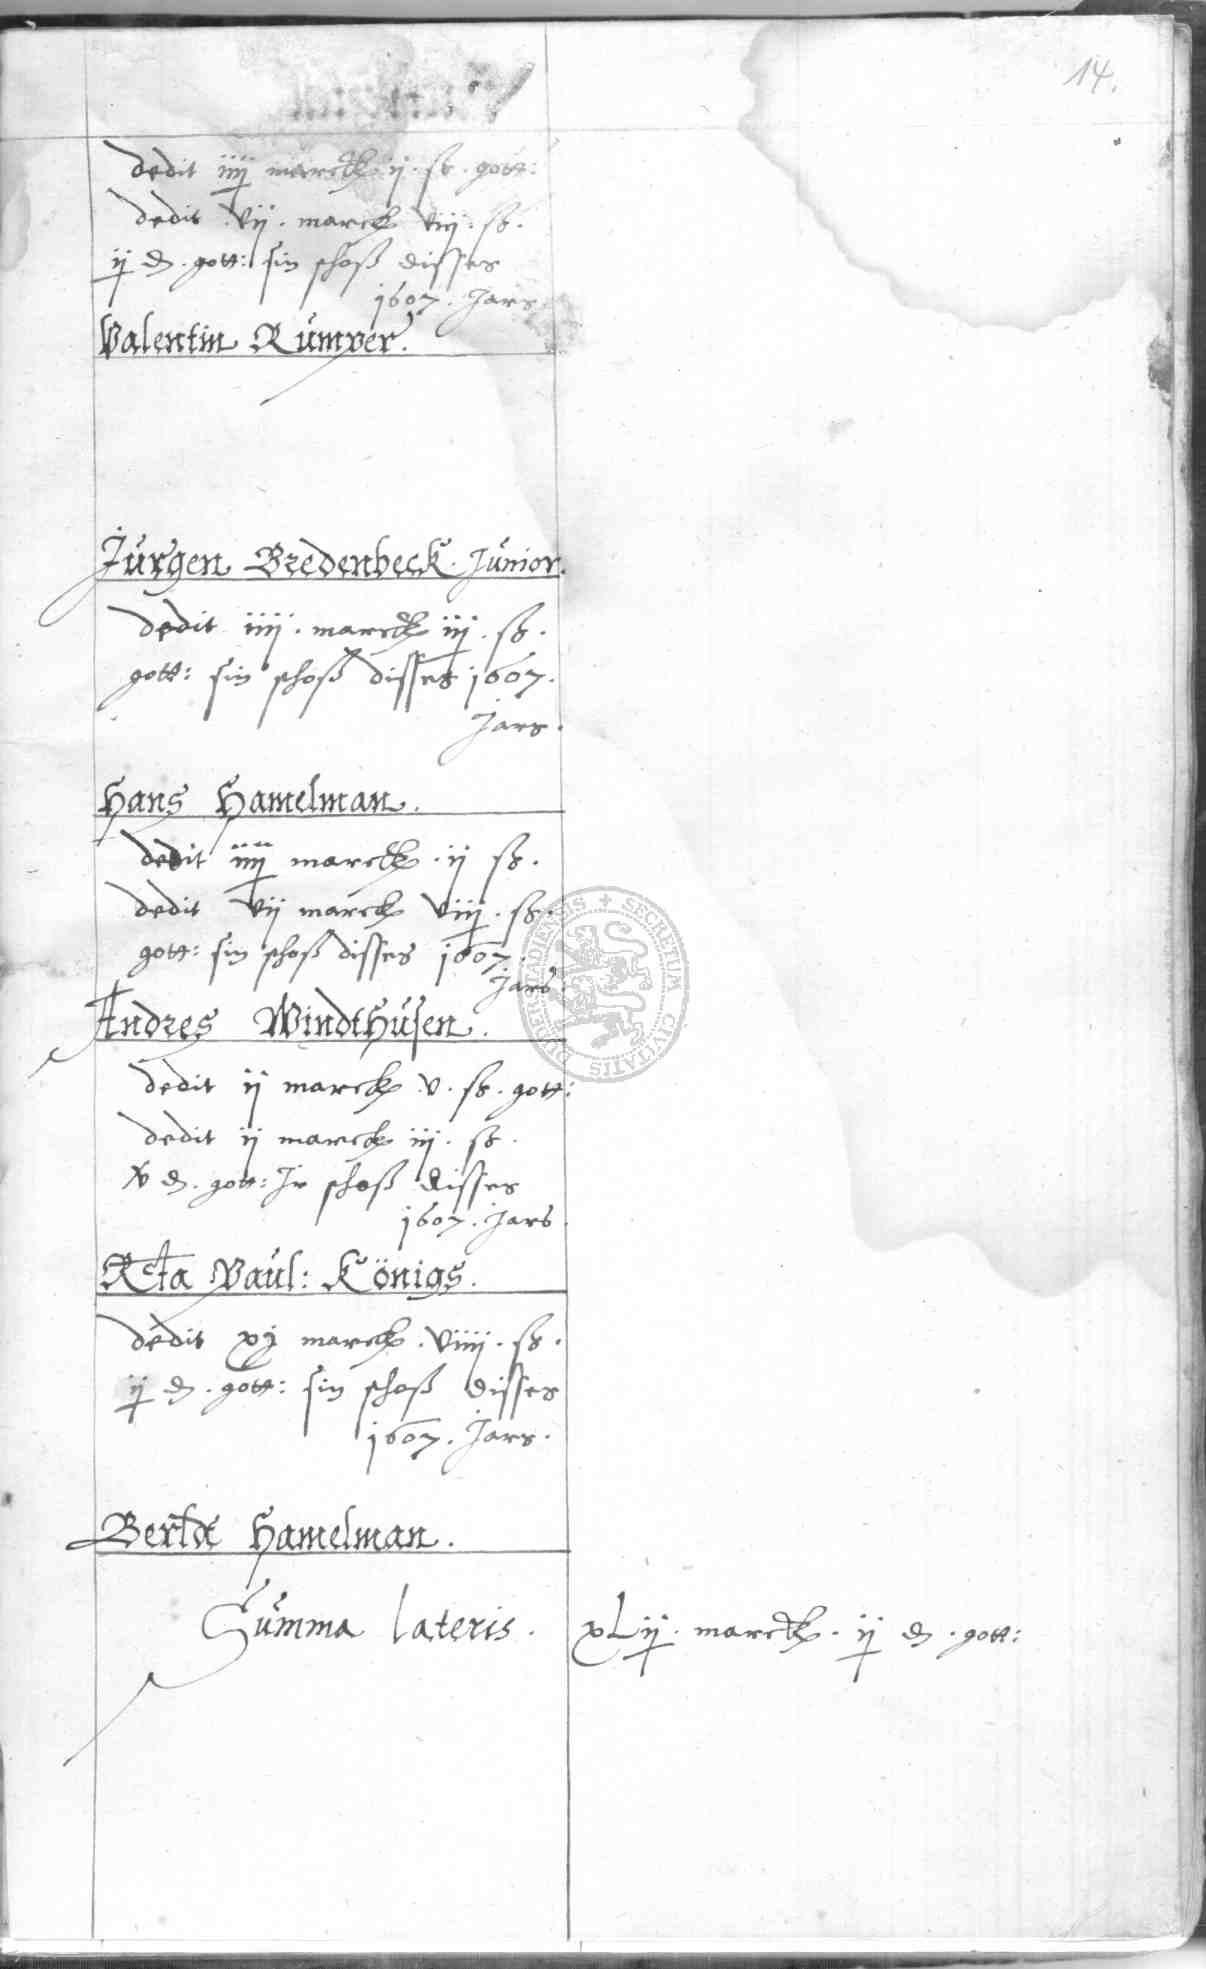 14.
dedit iiij marck ij. ß. gott:
dedit vij. marck viij. ß.
ij ₰. gott: sin schoß disses
1607. Jars
Valentin Rümper.
Jürgen Bredenbeck. Junior.
dedit iiij. marck iij. ß.
gott: sin schoß disses 1607.
Jars.
Hans Hamelman.
dedit iiij marck. ij ß.
dedit vij marck viij. ß.
gott: sin schoß disses 1607.
Jars.
Andres Windthusen.
dedit ij marck. v. ß. gott:
dedit ij marck iij. ß.
v ₰. gott: Ir schoß disses
1607. Jars.
Rcta Paul: Königs.
dedit xj marck. viiij. ß.
ij ₰. gott: sin schoß disses
1607. Jars.
Hamelman.
Summa lateris. xLij. marck. ij ₰. gott:
SECRETUM CIVITATIS DUDERSTADIENSIS